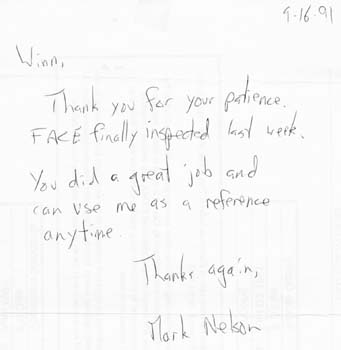 9-16-91
Winn,
Thank you for your patience.
FACE finally inspected last week.
You did a great job and
can use me as a reference
anytime.
Thanks again,
Mark Nelson